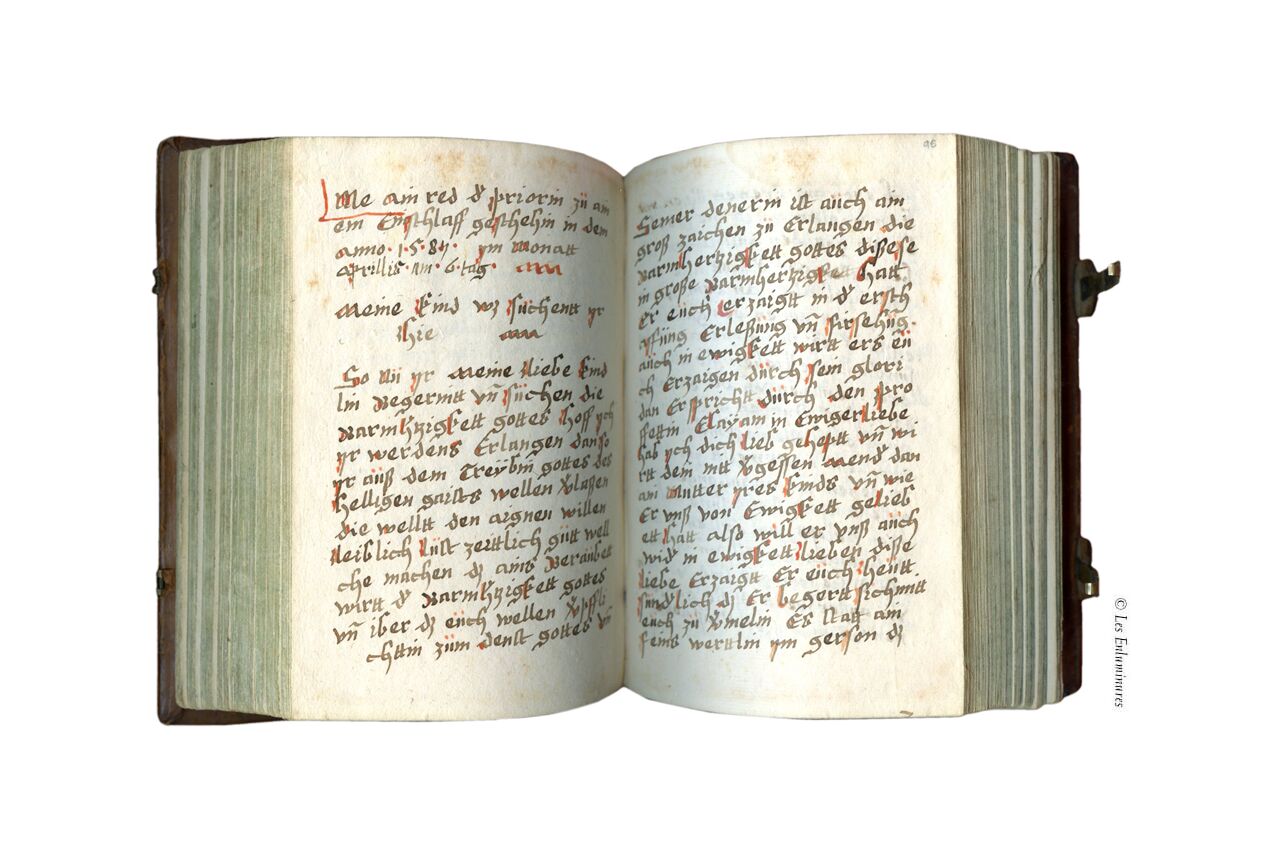 Me ain red d' priorin zü ain
em Enschlaff geschehin in dem
anno · 1 · 5 · 87 · ym Monatt
Aprillis · Am · 6 · tag ·
Meine kind wz süchentt yr
hie
So Nü yr meine liebe kind
lin Begerntt vn̄ süchen die
Barmh'tzigkett gottes hoff ych
yr werdens Erlangen dan so
yr auß dem Treybin gottes des
helligen gaists wellen v'laßen
die welltt den aignen willen
leiblich lüst zeittlich gütt well
che machen dz ains Beraubett
wirtt d' Barmh'tzigkett gottes
vn̄ iber dz eüch wellen v'pfli
chttin züm denst gottes vn̄
96
Seiner denerin ist auch ain
groß zaichen zü Erlangen die
Barmhertzigkett gottes dißese
in große Barmhertzigkett hatt
Er eüch erzaigtt in d' ersch
affüng Erleßüng vn̄ firsehüg ·
auch in ewigkett wirtt ers eü
ch Erzaigen dürch sein glori
dan Er sprichtt dürch den pro
ffettin Esayam in Ewiger liebe
hab ych dich lieb gehептt vn̄ wi
rtt dein nitt v'gessen mend' dan
ain Mutter yres kinds vn̄ wie
Er vnß von Ewigkett gelieb
ett hatt also will er vnß auch
wid' in ewigkett lieben diße
liebe Erzaigtt Er eüch heütt
sündlich dz Er begertt sich mitt
euch zu v'melin Es statt ain
feins werttlin ym gerson dz
© Les Enluminures